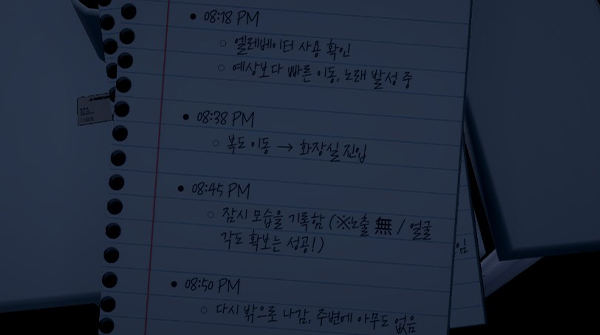 08:18 PM
엘레베이터 사용 확인
예상보다 빠른 이동, 노래 발성 중
08:38 PM
복도 이동 → 화장실 진입
08:45 PM
잠시 모습을 기록함 (※노출 無 / 얼굴
각도 확보는 성공!)
08:50 PM
다시 밖으로 나감, 주변에 아무도 없음
임